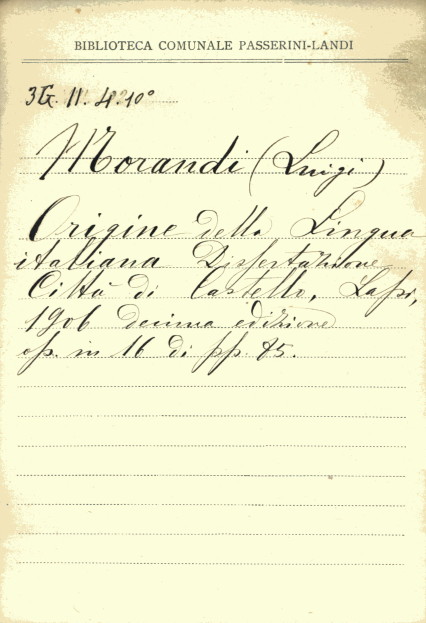 BIBLIOTECA COMUNALE PASSERINI-LANDI
3G. II. 4. 10°
Morandi (Luigi)
Origine della Lingua
italiana Dissertazione
Città di Castello, Lapi,
1906 decima edizione
op. in 16 di pp. 85.